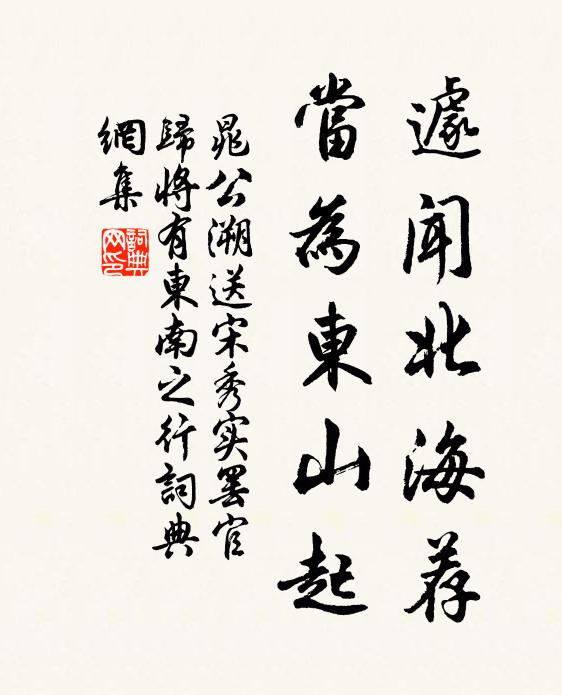 遽聞北海荐
當為東山起
晁公溯送宋秀实罢官
歸將有東南之行詞典
網集
詞典網印